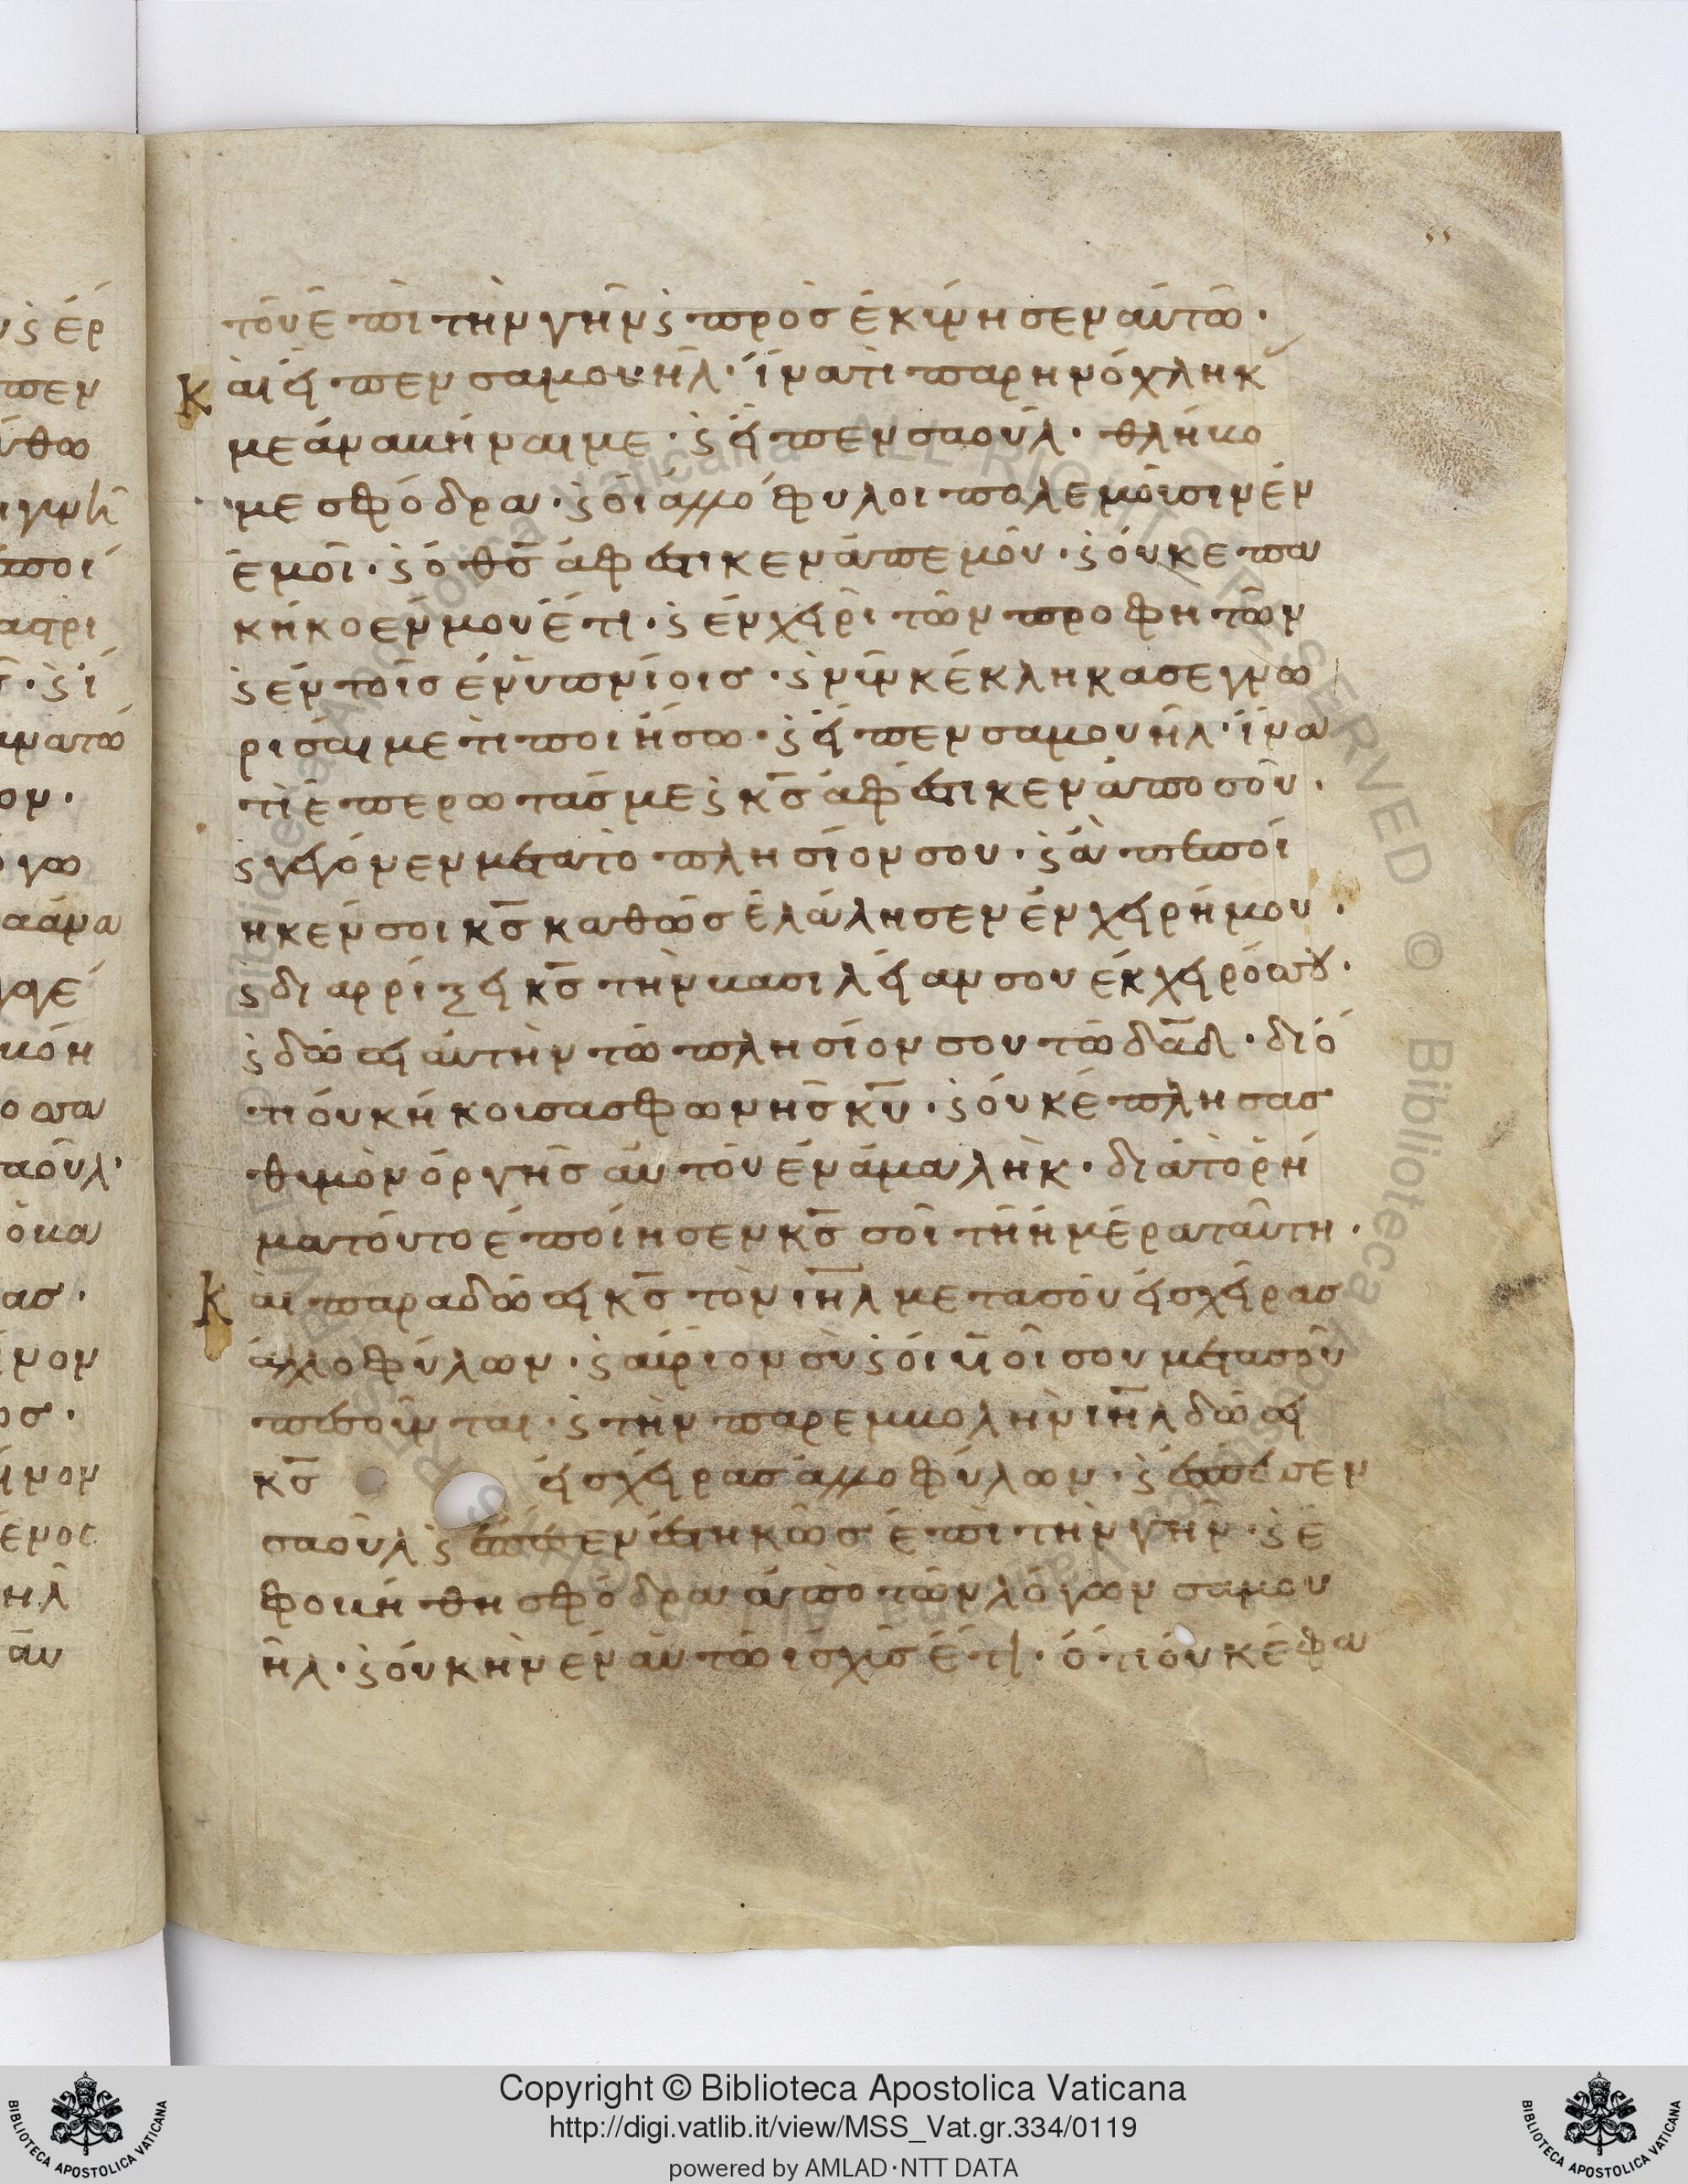 τοῦ ἐπὶ τὴν γῆν ϛ προσεκύνησεν αὐτῶ·
Καὶ εἶπεν σαμουὴλ· ἵνατί παρηνόχληκ
με ἀναβῆναι με· ϛ εἶπεν σαοὺλ· θλήβο
με σφόδρα· ϛ οἱ ἀλλόφυλοι πολεμοῦσιν ἐν
ἐμοί· ϛ ὁ θς ἀφέστικεν ἀπ ἐμοῦ· ϛ οὐκ επα
κήκοεν μου ἔτι· ϛ ἐν χειρὶ τῶν προφητῶν
ϛ ἐν τοῖς ἐνυπνίοις· ϛ νῦν κέκληκα σε γνω
ρίσαι με τί ποιήσω· ϛ εἶπεν σαμουὴλ· ἵνα
τί ἐπερωτᾶς με ϛ κς ἀφέστικεν ἀπο σοῦ·
ϛ γέγόνεν μετατὸ πλησίον σου· ϛ ἀ πεποί
ηκέν σοι κς καθὼς ἐλάλησεν ἐν χειρήμου·
ϛ διαρρίξει κς τὴν βασιλείαν σου ἐκ χειρός σου·
ϛ δώσει αὐτὴν τῶ πλησίον σου τῶ δαδ· διό
τι οὐκ ήκουσας φωνῆς κυ· ϛ οὐκ ἐπλησας
θυμὸν ὀργῆς αὐτοῦ ἐν ἀμαλὴκ· διὰ τὸ ρή
μα τοῦτο ἐποίησεν κς σοὶ τῆ ἡμέρα ταύτη·
Καὶ παραδώσει κς τὸν ιηλ μετα σοῦ εἰς χεῖρας
ἀλλοφύλων· ϛ αύριον σὺ ϛ οἱ υἱοί σου μετα σοῦ
πεσοῦνται· ϛ τὴν παρεμβολὴν ιηλ δώσει
κς εἰς χεῖρας ἀλλοφύλων· ϛ ἔσπευσεν
σαοὺλ ϛ ἔπεσεν ἑστηκὼς ἐπὶ τὴν γῆν· ϛ ἐ
φοβήθη σφόδρα ἀπὸ τῶν λόγων σαμου
ήλ· ϛ οὐκ ἦν ἐν αὐτῶ ἰσχὺς ἔτι· ὅτι οὐκ ἔφα
Copyright © Biblioteca Apostolica Vaticana
http://digi.vatlib.it/view/MSS_Vat.gr.334/0119
powered by AMLAD·NTT DATA
BIBLIOTECA APOSTOLICA VATICANA
BIBLIOTECA APOSTOLICA VATICANA